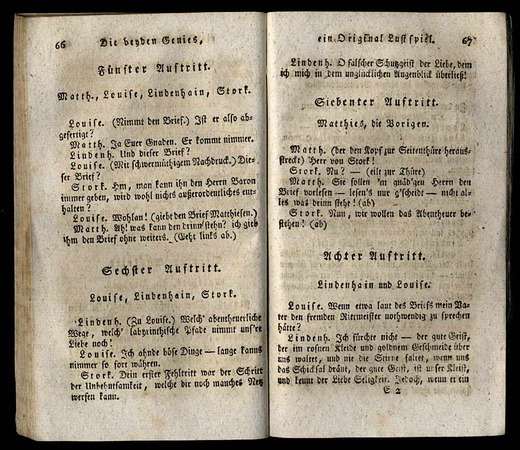 66 Die beyden Genies,
Fünfter Auftritt.
Matth., Louise, Lindenhain, Stork.
Louise. (Nimmt den Brief.) Ist er also ab-
gefertigt?
Matth. Ja Euer Gnaden. Er kommt nimmer.
Lindenh. Und dieser Brief?
Louise. (Mit schwermüthigem Nachdruck.) Die-
ser Brief?
Stork. Hm, man kann ihn den Herrn Baron
immer geben, wird wohl nichts außerordentliches ent-
halten?
Louise. Wohlan! (giebt den Brief Matthiesen.)
Matth. Ah! was kann den drinn stehn? ich gieb
ihm den Brief ohne weiters. (Geht links ab.)
Sechster Auftritt.
Louise, Lindenhain, Stork.
Lindenh. (Zu Louise.) Welch' abentheuerliche
Wege, welch' labyrinthische Pfade nimmt unsre
Liebe noch!
Louise. Ich ahnde böse Dinge — lange kanns
nimmer so fort währen.
Stork. Dein erster Fehltritt war der Schritt
der Unbehutsamkeit, welche dir noch manches Netz
werfen kann.
ein Original Lustspiel. 67
Lindenh. O falscher Schutzgeist der Liebe, dem
ich mich in dem unglücklichen Augenblick überließ!
Siebenter Auftritt.
Matthies, die Vorigen.
Matth. (der den Kopf zur Seitenthüre heraus-
streckt) Herr von Stork!
Stork. Nu? — (eilt zur Thüre)
Matth. Sie sollen 'm gnäd'gen Herrn den
Brief vorlesen — lesen's nur g'scheid — nicht al-
les was drinn steht! (ab)
Stork. Nun, wir wollen das Abentheuer be-
stehen! (ab)
Achter Auftritt.
Lindenhain und Louise.
Louise. Wenn etwa laut des Briefs mein Va-
ter den fremden Rittmeister nothwendig zu sprechen
hätte?
Lindenh. Ich fürchte nicht — der gute Geist,
der im rosnen Kleide und goldnem Geschmeide über
uns waltet, und nie die Stirne faltet, wenn uns
das Schicksal dräut, der gute Geist, ist unser Kleist,
und kennt der Liebe Seligkeit. Jedoch, wenn er ein
E 2